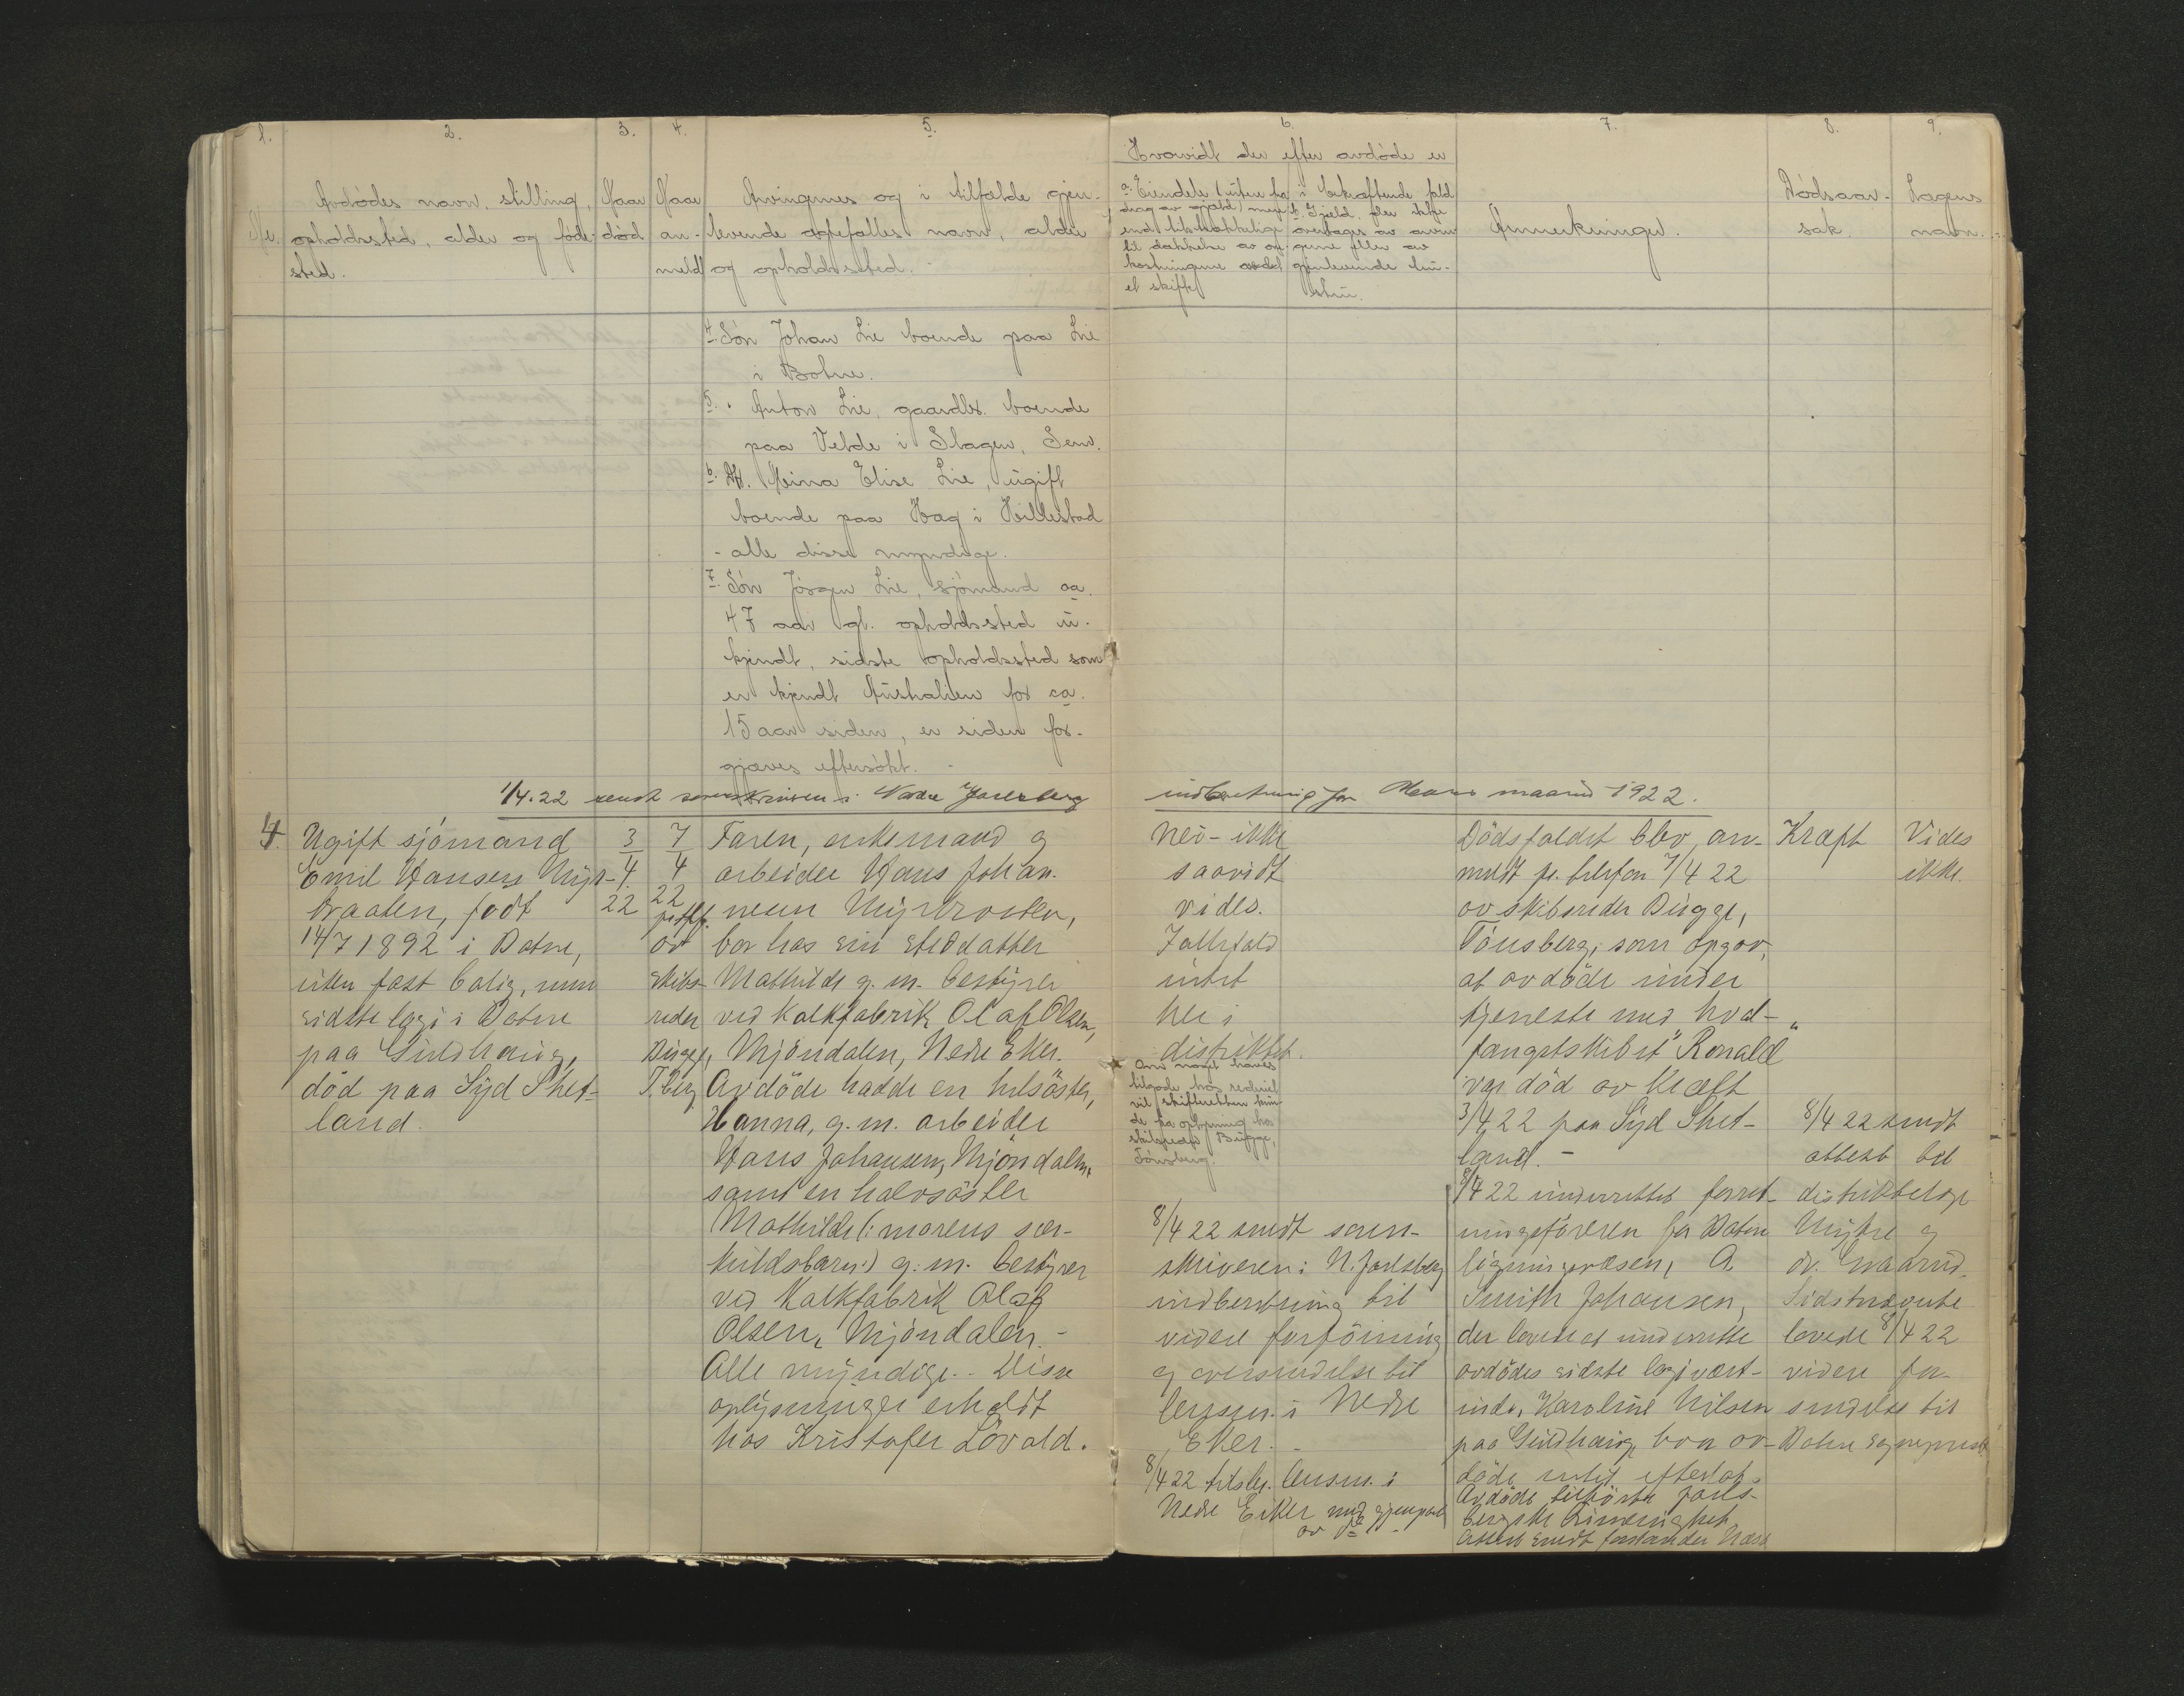 1. 2. 3. 4. 5. 6. 7. 8. 9.
Nr.
Avdødes navn, stilling,
opholdssted, alder og føde-
sted.
Naar
død
Naar
an-
meldt
Arvingernes og i tilfælde gjen-
levende ægtefælles navn, alder
og opholdssted.
Hvorvidt der efter avdøde er
a. Eiendele (uten fra
drag av gjæld) mere
end tilstrækkelige
til dækkelse av om
kostningene ved
et skifte
i bekræftende fald
b. Gjæld, eller ikke
overtages av arvin
gerne eller av
gjenlevende
Anmerkninger.
Dødsaar-
sak.
Lægens
navn.
4. Søn Johan Lie boende paa Lie
i Botne.
5. " Anton Lie, gaardbr. boende
paa Velde i Slagen, Sem.
6. Mina Elise Lie, ugift
boende paa Hag i Hillestad
- alle disse myndige.
7. Søn Jørgen Lie, sjømand ca.
47 aar gl. opholdssted u-
kjendt, sidste opholdssted som
er kjendt Australien for ca.
15 aar siden, er siden for-
gjæves eftersøkt. -
1/4.22 sendt sorenskriveren i Nordre Jarlsberg indberetning for Mars maaned 1922.
4.
Ugift sjömand
Emil Hansen Myr-
braaten, födt
14/7 1892 i Botne,
uten fast bolig, men
sidste logi i Botne
paa Guldhaug,
död paa Syd Shet-
land.
3
4.
22
7
4
22
pr. tlf.
av
skibs-
reder
Bugge,
T.berg
Faren, enkemand og
arbeider Hans Johan-
nesen Myrbraaten,
bor hos sin steddatter
Mathilde g. m. bestyrer
ved Kalkfabrik Olaf Olsen,
Mjöndalen, Nedre Eker.
Avdöde hadde en helsöster,
Hanna, g. m. arbeider
Hans Johansen, Mjöndalen,
samt en halvsöster
Mathilde (: morens sær-
kuldsbarn :) g. m. bestyrer
ved Kalkfabrik Olaf
Olsen, Mjöndalen. -
Alle myndige. - Disse
oplysninger erholdt
hos Kristofer Lövald.
Nei - ikke
saavidt
vides.
Ialfald
intet
her i
distriktet.
Om noget haves
tilgode hos rederiet
vil skifteretten kun-
de faa oplysning hos
skibsreder Bugge,
Tønsberg.
8/4 22 sendt soren-
skriveren i N. Jarlsberg
indberetning til
videre forföining
og oversendelse til
lensm. i Nedre
Eker. -
8/4 22 tilskr. lensm. i
Nedre Eker med gjenpart
av
Dödsfaldet blev an-
meldt pr. telefon 7/4 22
av skibsreder Bugge,
Tönsberg, som opgav,
at avdöde under
tjeneste med hval-
fangstskibet "Ronald"
var död av Kræft
3/4 22 paa Syd Shet-
land. -
8/4 22 underrettet forret-
ningsföreren for Botne
ligningsvæsen, A.
Smith Johansen,
der lovet at underrette
avdödes sidste logivert-
inde, Karoline Nilsen
paa Guldhaug, hvor av-
döde intet efterlot.
Avdöde tilhörte Jarls-
bergske
Attest sendt forstander Næss
Kræft
8/4 22 sendt
attest til
distriktslæge
Myhre og
dr. Graarud.
Sidstnævnte
lovede 8/4 22
videre for-
sendelse til
Botne sogneprest
Vides
ikke.